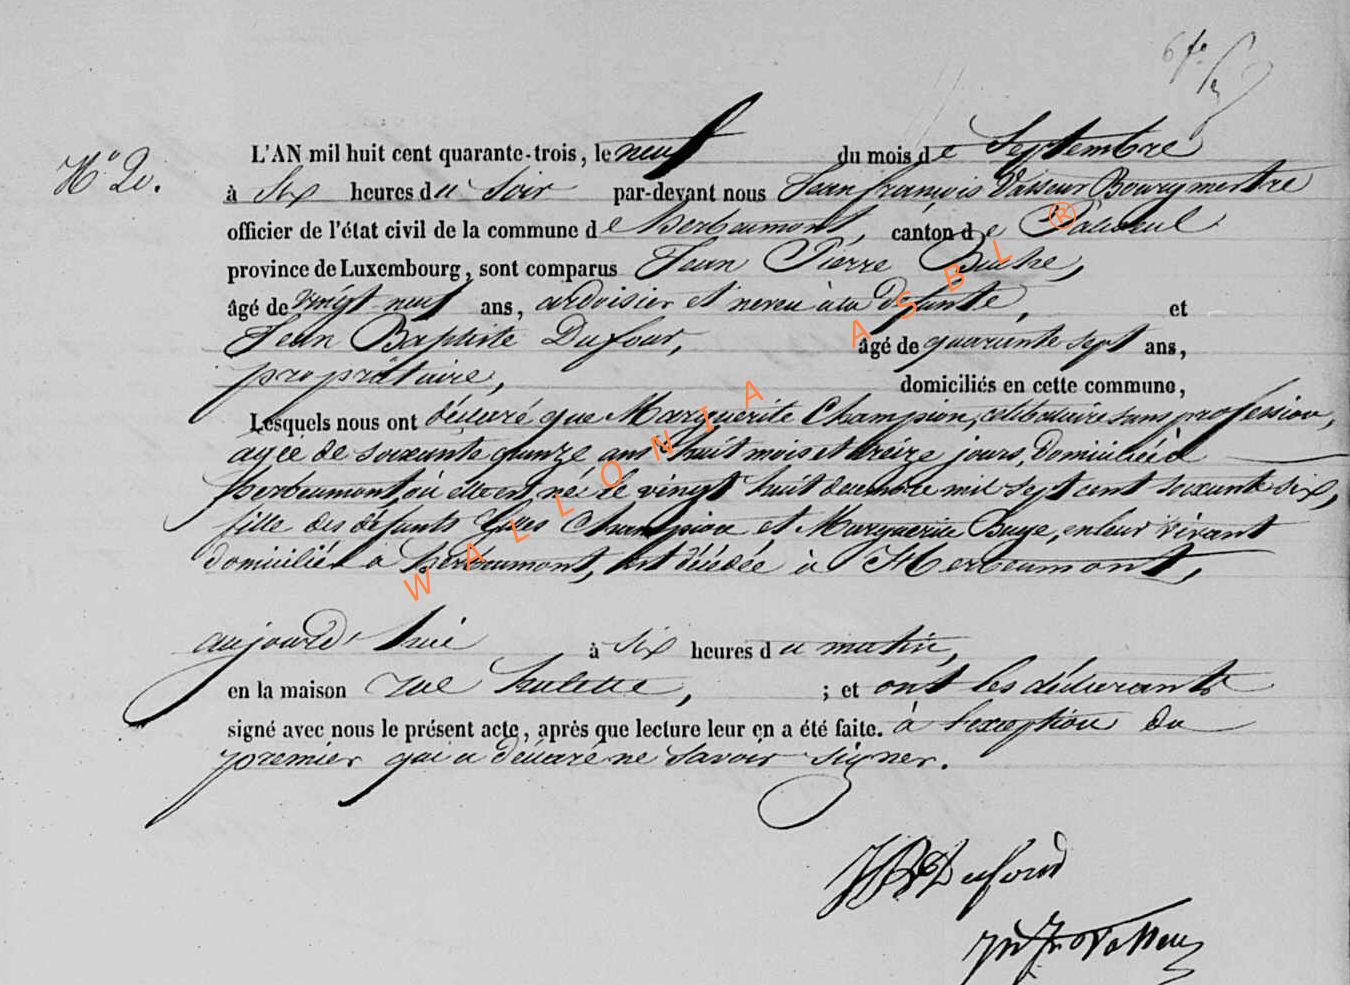 N° 20.
L'AN mil huit cent quarante-trois, le neuf du mois de Septembre
à Six heures du Soir par-devant nous Jean françois Vasseur Bourgmestre
officier de l'état civil de la commune de herbeumont, canton de Paliseul
province de Luxembourg, sont comparus Jean Pierre
âgé de vingt-neuf ans, ardoisier et neveu à la défunte, et
Jean Baptiste Dufour, âgé de quarante sept ans,
propriétaire, domiciliés en cette commune,
Lesquels nous ont déclaré que Marguerite Champion, célibataire sans profession,
agée de soixante quinze ans huit mois et treize jours, Domiciliée à
herbeumont, où elle est née le vingt huit decembre mil sept cent soixante six,
fille des défunts Gilles Champion et Marguerite Baye, en leur vivant
domiciliés à herbeumont, est décédée à Herbeumont,
aujourd'hui à six heures du matin,
en la maison rue hulette, ; et ont les déclarants
signé avec nous le présent acte, après que lecture leur en a été faite. à l'exception du
premier qui a déclaré ne Savoir signer.
JB Dufour
WALLONIA ASBL ®